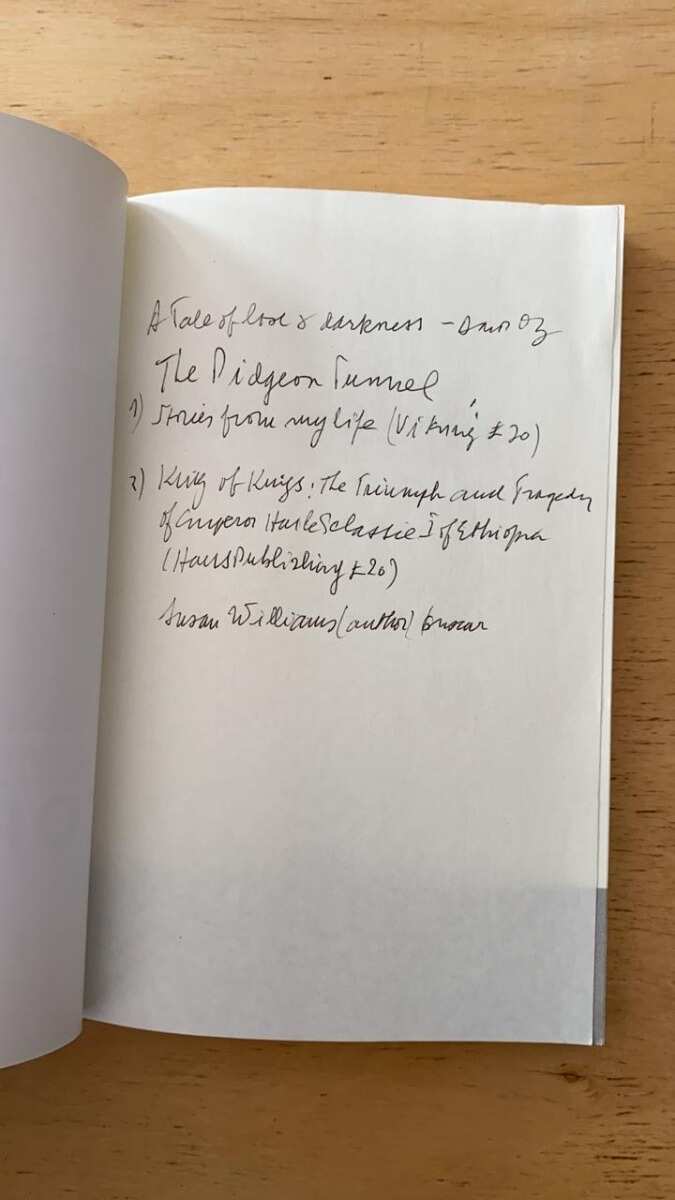 A Tale of love & darkness - Amos Oz
The Pidgeon Tunnel
1) Stories from my life (Viking £20)
2) King of Kings: The Triumph and Tragedy
of Emperor Haile Selassie I of Ethiopia
(Haus Publishing £20)
Susan Williams (author) buscar